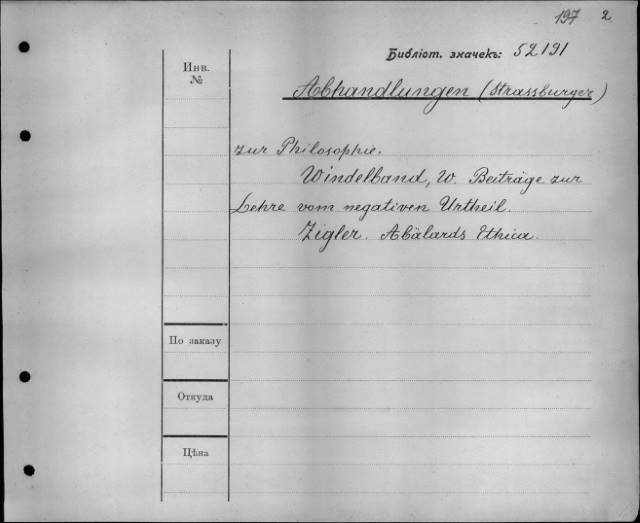 197 2
Библіот. значекъ: 52191
Инв. №
Abhandlungen (Strassburger)
zur Philosophie.
Windelband, W. Beiträge zur
Lehre vom negativen Urtheil.
Zigler. Abälards Ethica.
По заказу
Откуда
Цѣна